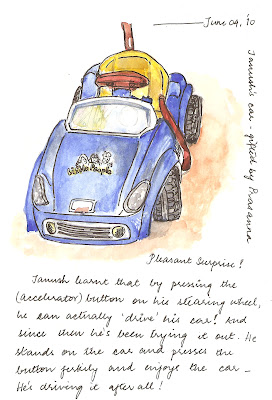 June 09, '10
Janush's car - gifted by Prasanna
Little People
Pleasant Surprise!
Janush learnt that by pressing the
(accelerator) button on his stearing wheel,
he can actually 'drive' his car! And
since then he's been trying it out. He
stands on the car and presses the
button forkily and enjoys the car -
He's driving it after all!